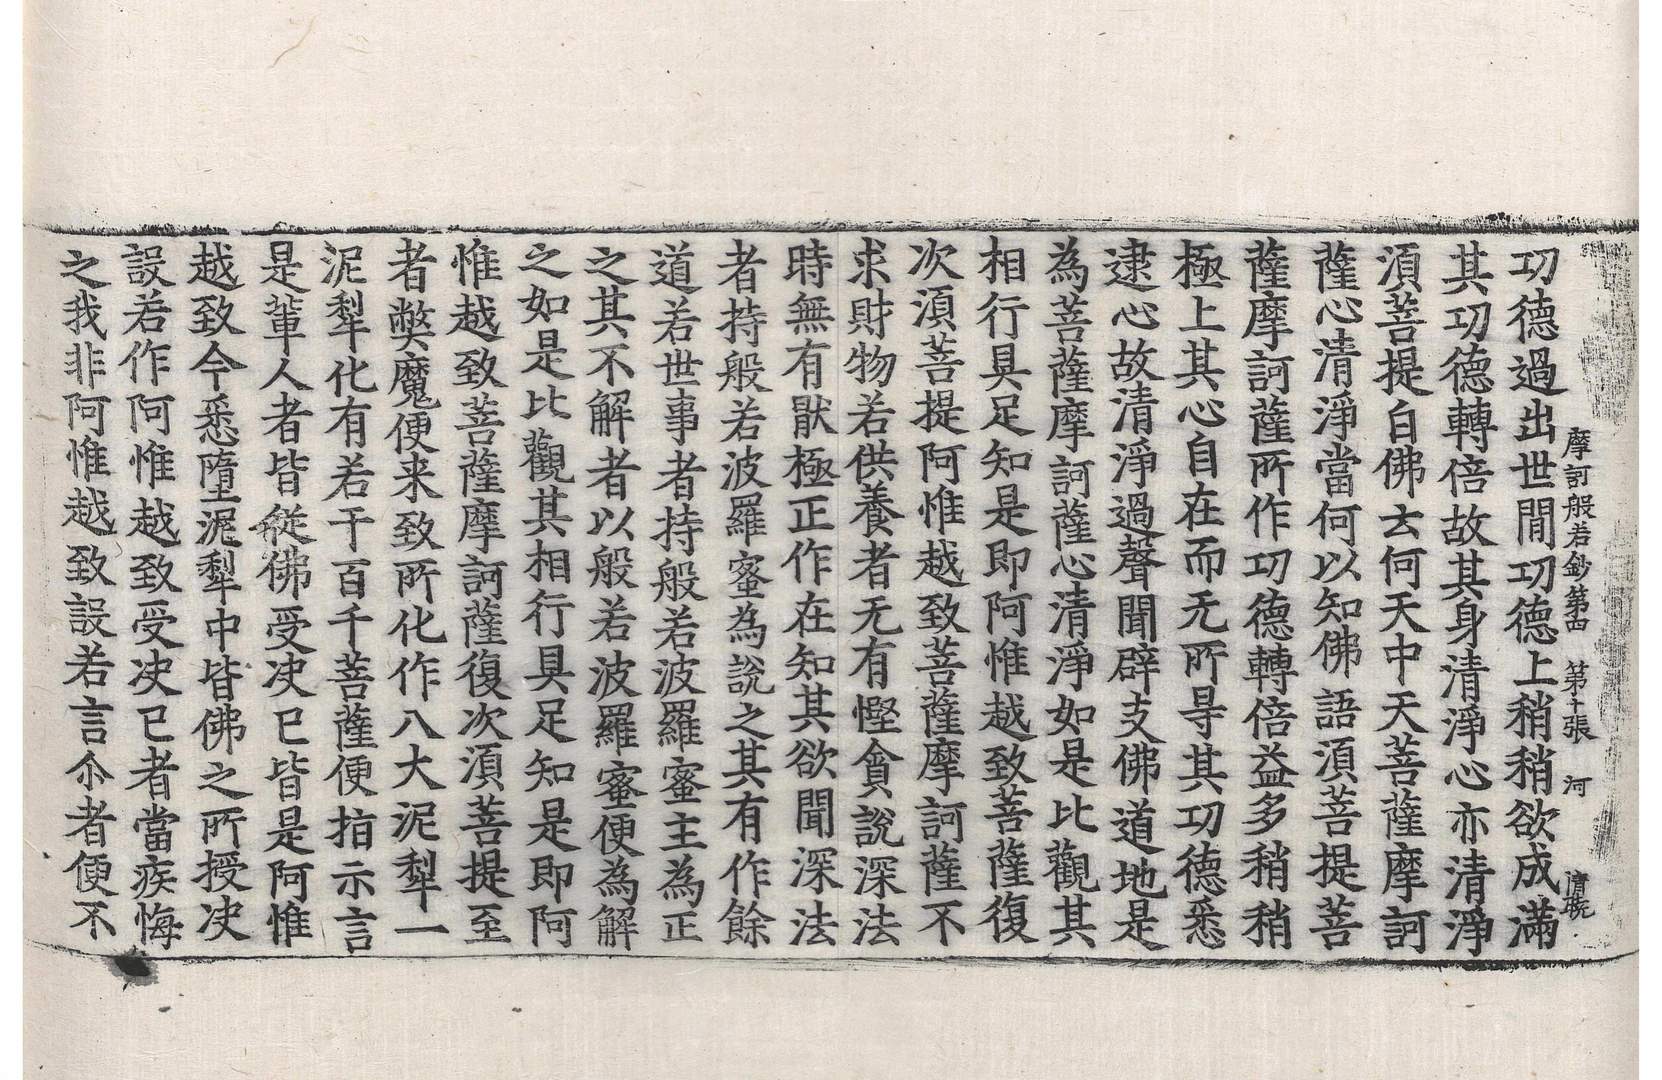 摩訶般若鈔第四 第十張 河
功德過出世閒功德上稍稍欲成滿
其功德轉倍故其身清淨心亦清淨
須菩提白佛言何天中天菩薩摩訶
薩心清淨當何以知佛語須菩提菩
薩摩訶薩所作功德轉倍益多稍稍
極上其心自在而无所㝵其功德悉
逮心故清淨過聲聞辟支佛道地是
為菩薩摩訶薩心清淨如是比觀其
相行具足知是即阿惟越致菩薩復
次須菩提阿惟越致菩薩摩訶薩不
求財物若供養者无有慳貪說深法
時無有猒極正作在知其欲聞深法
者持般若波羅蜜為說之其有作餘
道若世事者持般若波羅蜜主為正
之其不解者以般若波羅蜜便為解
之如是比觀其相行具足知是即阿
惟越致菩薩摩訶薩復次須菩提至
者弊魔便来致所化作八大泥犁一
泥犁化有若干百千菩薩便指示言
是輩人者皆從佛受决已皆是阿惟
越致今悉墮泥犁中皆佛之所授决
設若作阿惟越致受决已者當疾悔
之我非阿惟越致設若言尒者便不